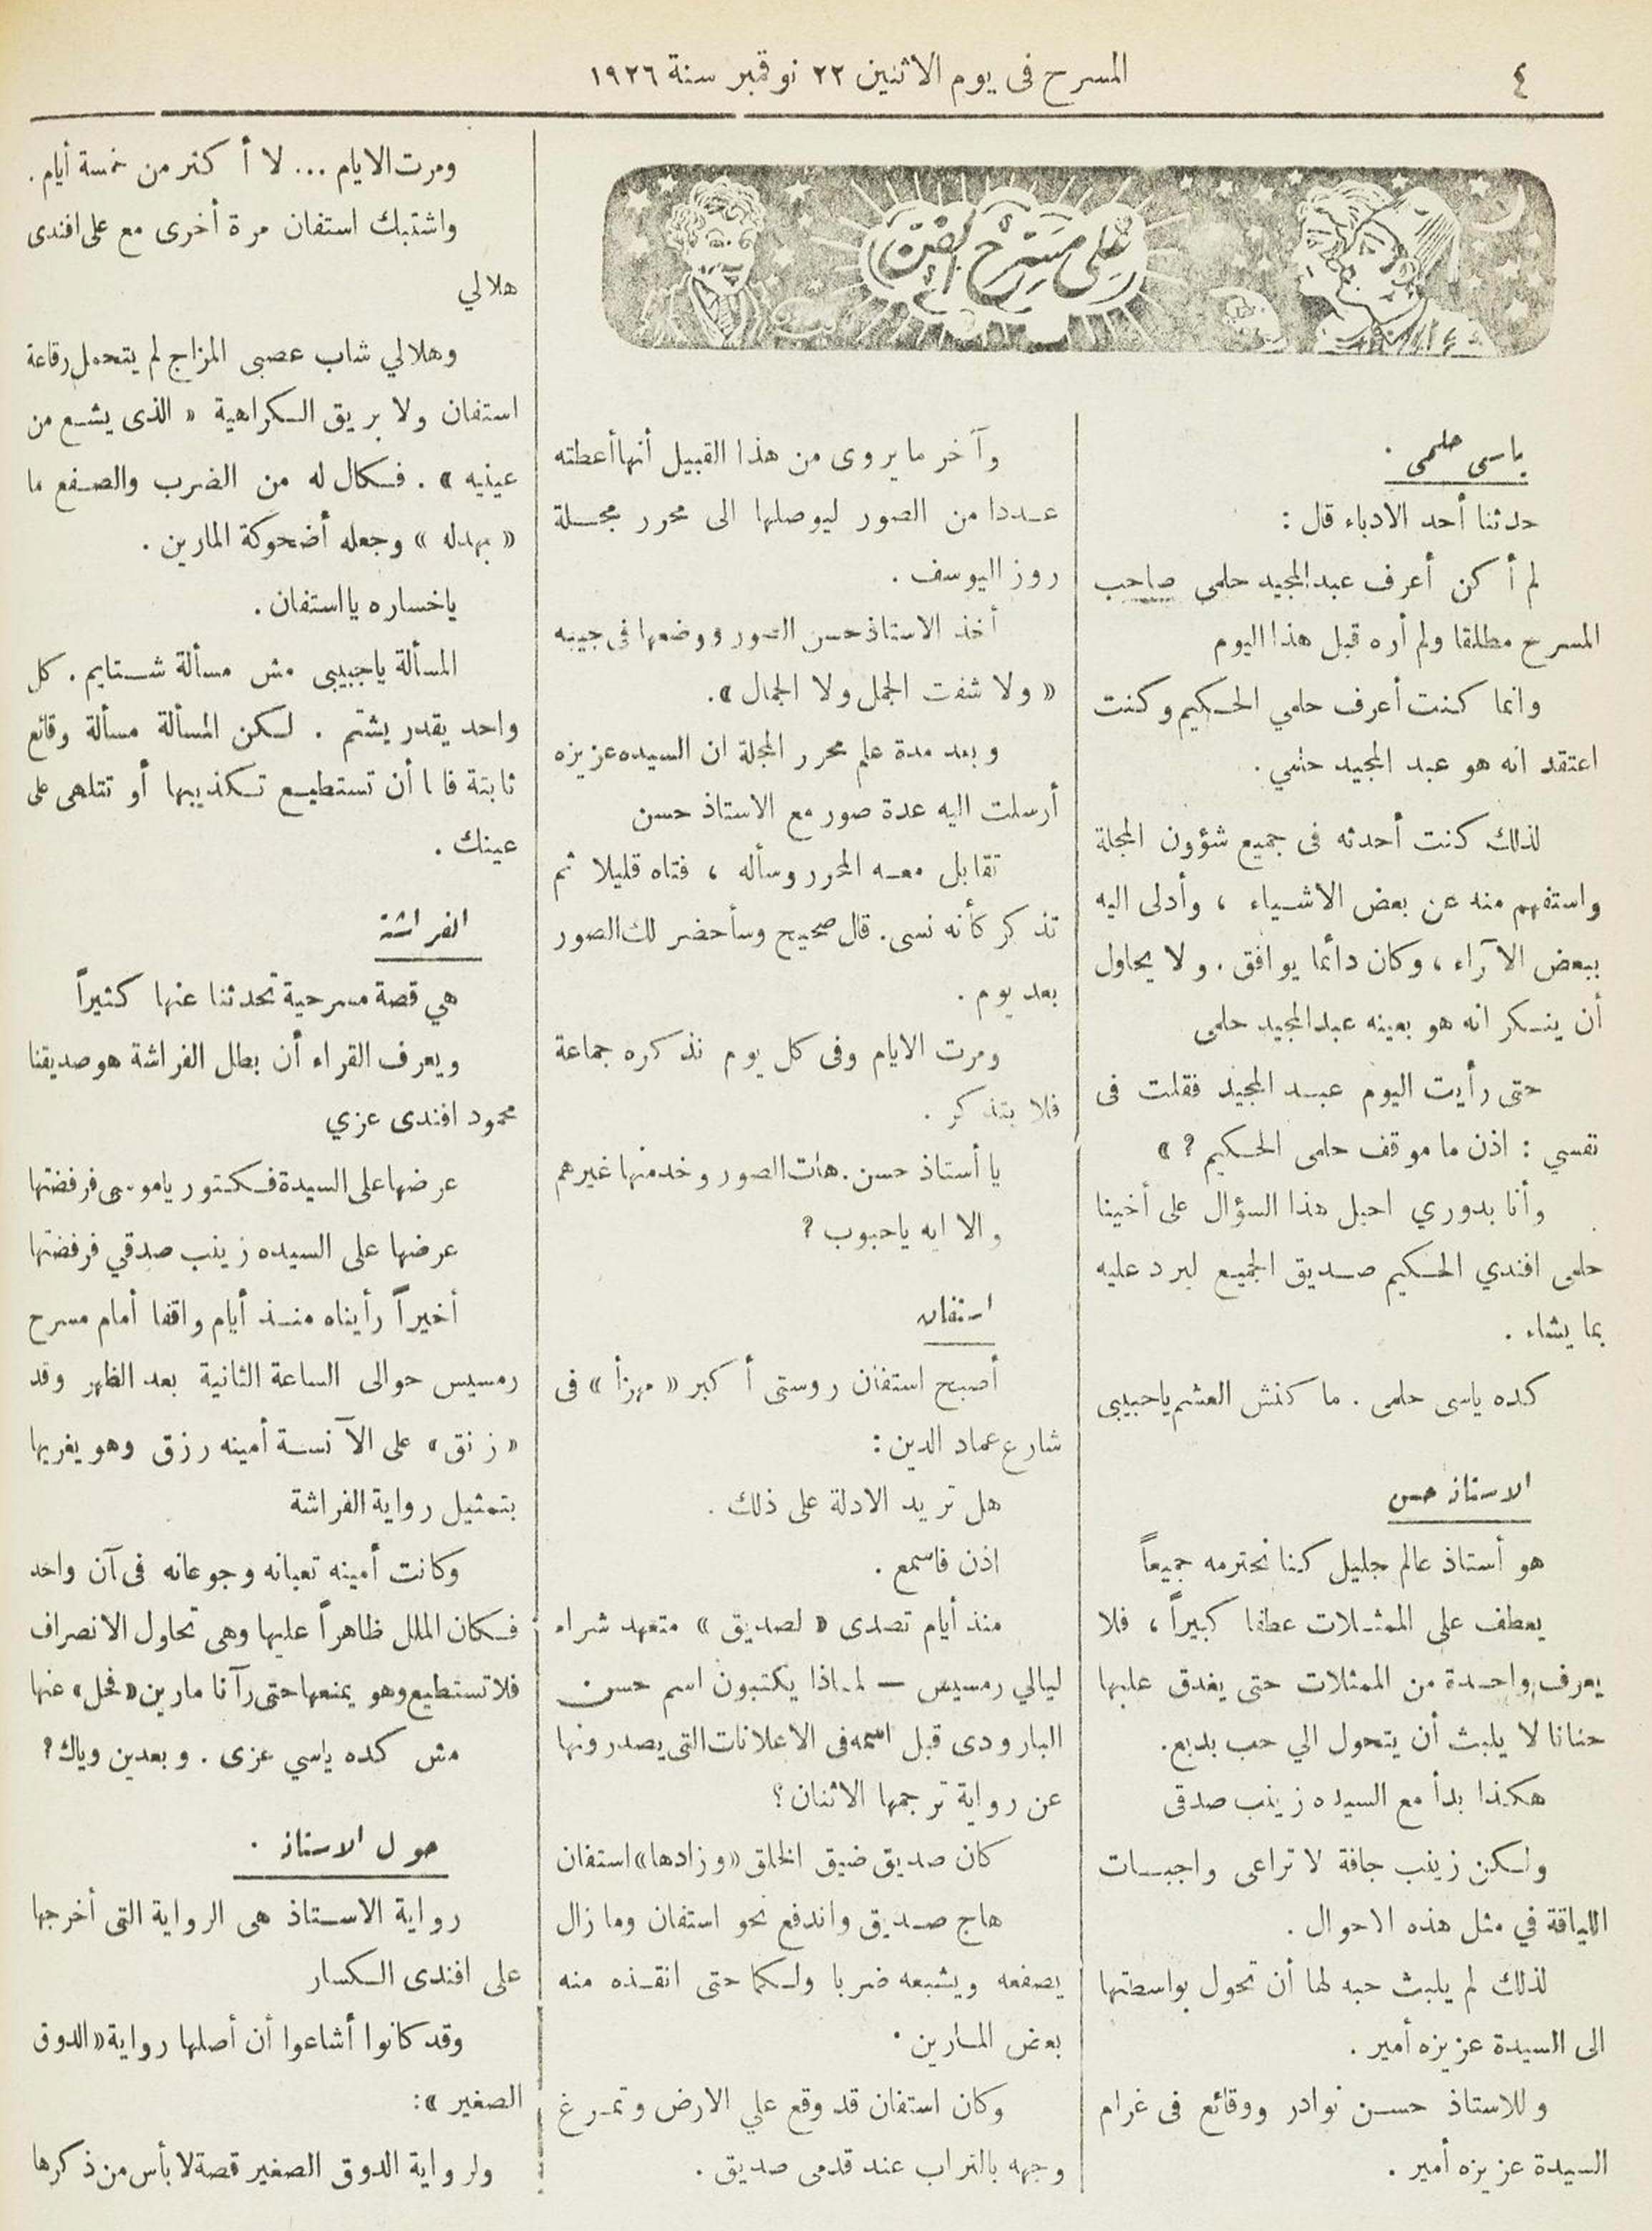 ٤
المسرح فى يوم الاثنين ٢٢ نوفمبر سنة ١٩٢٦
على مسرح الفن
ياسى حلمى .
حدثنا أحد الادباء قال :
لم أكن أعرف عبدالمجيد حلمى صاحب
المسرح مطلقا ولم أره قبل هذا اليوم
وانما كنت أعرف حلمي الحكيم وكنت
اعتقد انه هو عبد المجيد حلمي .
لذلك كنت أحدثه فى جميع شؤون المجلة
واستفهم منه عن بعض الاشياء ، وأدلى اليه
ببعض الآراء ، وكان دائما يوافق . ولا يحاول
أن ينكر انه هو بعينه عبدالمجيد حلمى
حتى رأيت اليوم عبد المجيد فقلت فى
نفسي : اذن ما موقف حلمى الحكيم ? »
وأنا بدوري احيل هذا السؤال على أخينا
حلمى افندي الحكيم صديق الجميع ليرد عليه
بما يشاء .
كده ياسى حلمى . ما كنش العشم ياحبيبى
الاستاذ حسن
هو أستاذ عالم جليل كنا نحترمه جميعاً
يعطف على الممثلات عطفا كبيراً ، فلا
يعرف واحدة من الممثلات حتى يغدق عليها
حنانا لا يلبث أن يتحول الي حب بديع.
هكذا بدأ مع السيده زينب صدقى
ولكن زينب جافة لا تراعى واجبات
اللياقة في مثل هذه الاحوال .
لذلك لم يلبث حبه لها أن تحول بواسطتها
الى السيدة عزيزه أمير .
وللاستاذ حسن نوادر ووقائع فى غرام
السيدة عزيزه أمير .
وآخر ما يروى من هذا القبيل أنها أعطته
عددا من الصور ليوصلها الى محرر مجلة
روز اليوسف .
أخذ الاستاذ حسن الصور ووضعها فى جيبه
« ولا شفت الجمل ولا الجمال ».
وبعد مدة علم محرر المجلة ان السيده عزيزه
أرسلت اليه عدة صور مع الاستاذ حسن
تقابل معه المحرر وسأله ، فتاه قليلا ثم
تذكر كأنه نسى . قال صحيح وسأحضر لك الصور
بعد يوم .
ومرت الايام وفى كل يوم نذكره جماعة
فلا يتذكر .
يا أستاذ حسن . هات الصور وخدمنها غيرهم
والا ايه ياحبوب ?
استفان
أصبح استفان روستى أكبر « مهزأ » فى
شارع عماد الدين :
هل تريد الادلة على ذلك .
اذن فاسمع .
منذ أيام تصدى « لصديق » متعهد شراء
ليالي رمسيس — لماذا يكتبون اسم حسن
البارودى قبل اسمه فى الاعلانات التى يصدرونها
عن رواية ترجمها الاثنان ؟
كان صديق ضيق الخلق «وزادها» استفان
هاج صديق واندفع نحو استفان وما زال
يصفعه ويشبعه ضربا ولكما حتى انقذه منه
بعض المارين .
وكان استفان قد وقع علي الارض وتمرغ
وجهه بالتراب عند قدمى صديق .
ومرت الايام ... لا أكثر من خمسة أيام .
واشتبك استفان مرة أخرى مع على افندى
هلالي
وهلالي شاب عصبى المزاج لم يتحمل رقاعة
استفان ولا بريق الكراهية « الذى يشع من
عينيه » . فكال له من الضرب والصفع ما
« بهدله » وجعله أضحوكة المارين .
ياخساره يا استفان .
المسألة ياحبيبى مش مسألة شتايم . كل
واحد يقدر يشتم . لكن المسألة مسألة وقائع
ثابتة فاما أن تستطيع تكذيبها أو تتلهى على
عينك .
الفراشة
هي قصة مسرحية تحدثنا عنها كثيراً
ويعرف القراء أن بطل الفراشة هو صديقنا
محمود افندى عزي
عرضها على السيدة فكتوريا موسى فرفضتها
عرضها على السيده زينب صدقي فرفضتها
أخيراً رأيناه منذ أيام واقفا أمام مسرح
رمسيس حوالى الساعة الثانية بعد الظهر وقد
« زنق » على الآنسة أمينه رزق وهو يغريها
بتمثيل رواية الفراشة
وكانت أمينه تعبانه وجوعانه فى آن واحد
فكان الملل ظاهراً عليها وهى تحاول الانصراف
فلا تستطيع وهو يمنعها حتى رآنا مارين «فخل» عنها
مش كده ياسي عزى . وبعدين وياك ?
حول الاستاذ .
رواية الاستاذ هى الرواية التى أخرجها
على افندى الكسار
وقد كانوا أشاعوا أن أصلها رواية « الدوق
الصغير » :
ولرواية الدوق الصغير قصة لا بأس من ذكرها